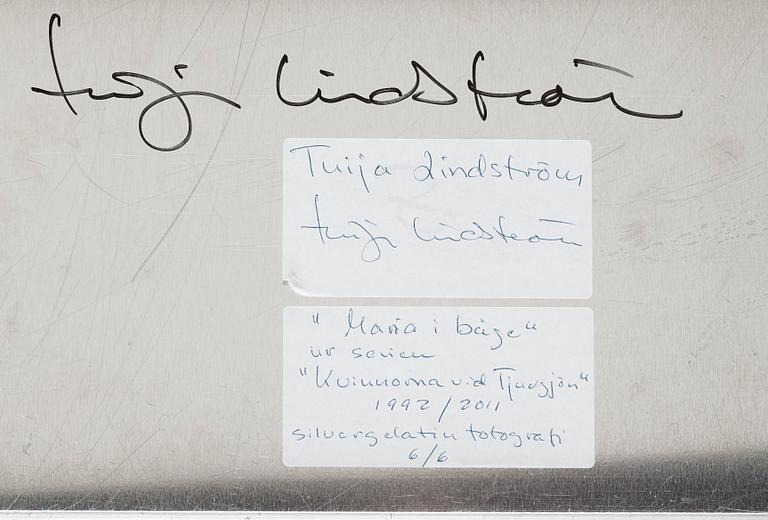 tuija lindström
Tuija Lindström
tuija lindström
" Maria i båge "
ur serien
"Kvinnorna vid Tjursjön"
1992/2011
silvergelatin fotografi
6/6